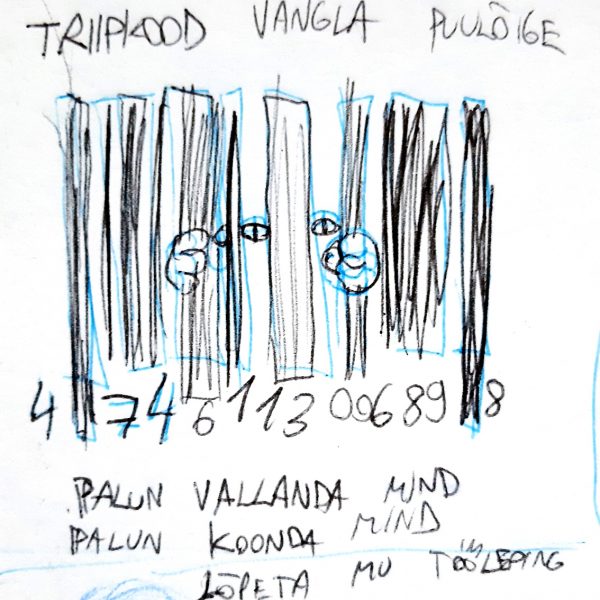 TRIIPKOOD VANGLA PUULÕIGE
4 746113 0096898
PALUN VALLANDA MIND
PALUN KOONDA MIND
LÕPETA MU TÖÖLEPING